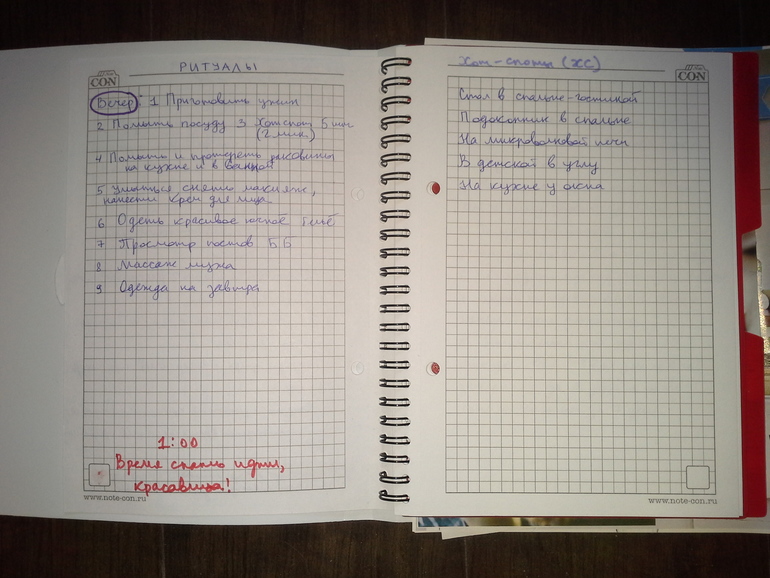 РИТУАЛЫ
CON
Вечер: 1 Приготовить ужин
2 Помыть посуду 3 Хотспот 5 мин
(2 мин.)
4 Помыть и протереть раковины
на кухне и в ванной
5 Умыться снять макияж,
нанести крем для лица
6 Одеть красивое ночное бельё
7 Просмотр постов ББ
8 Массаж мужа
9 Одежда на завтра
1:00
Время спать идти,
красавица!
www.note-con.ru
Хот-споты (ХС)
CON
Стол в спальне-гостиной
Подоконник в спальне
На микроволновой печи
В детской в углу
На кухне у окна
www.note-con.ru